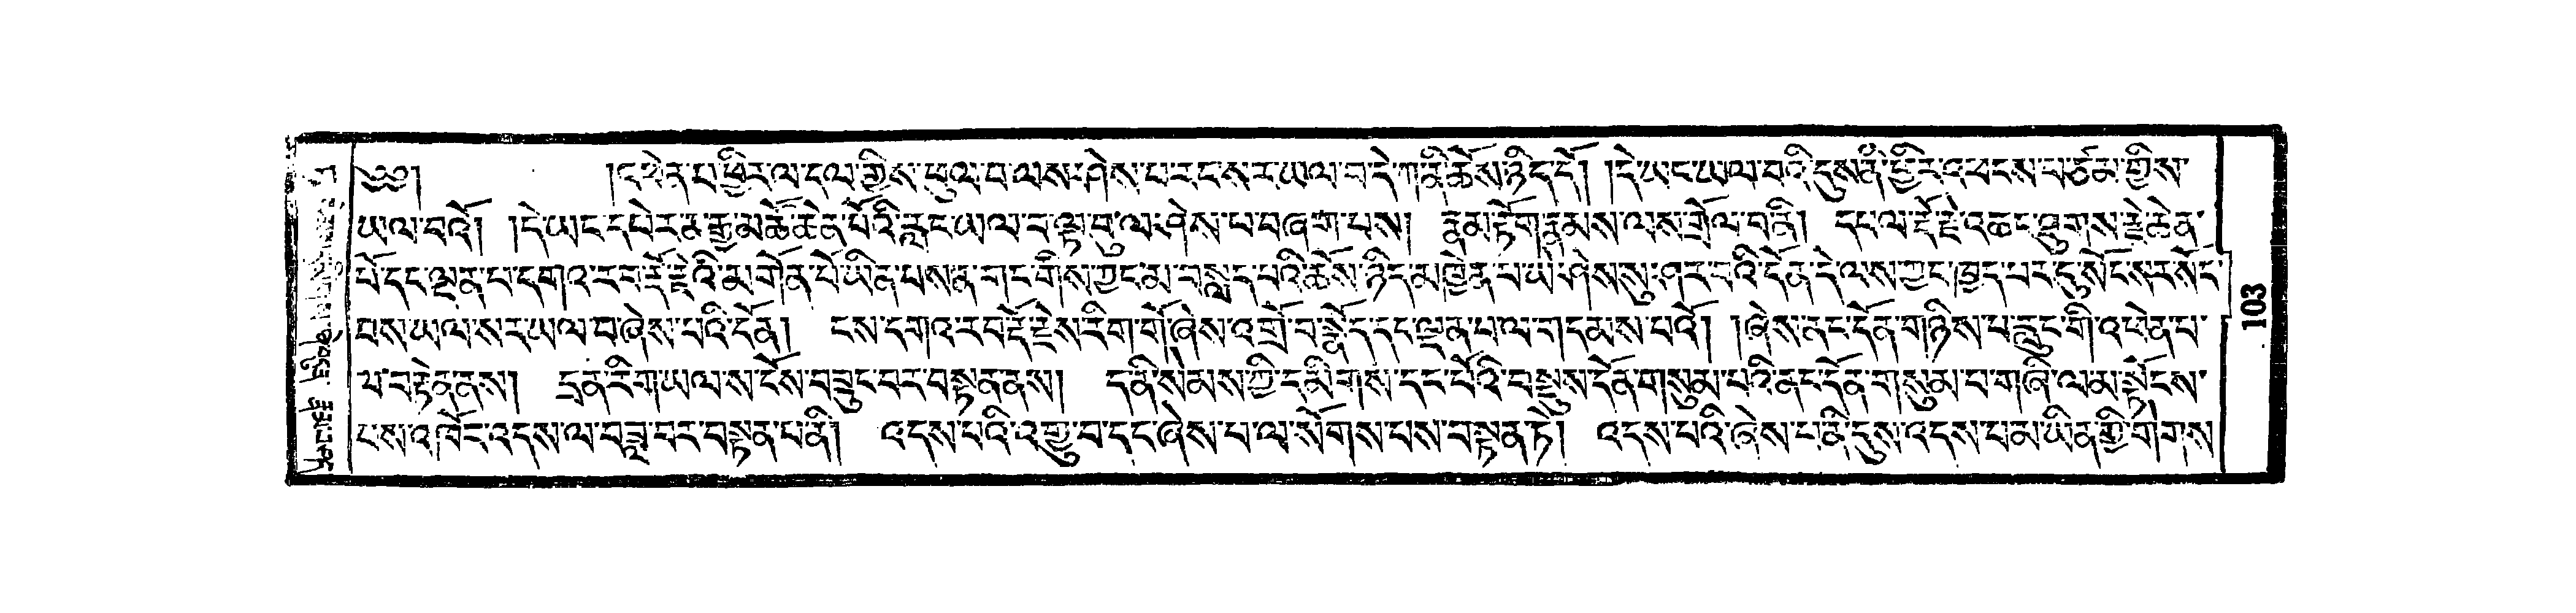 ༄༅། །ད་ཕེན་པ་ཕྱིར་ལ་དལ་གྱིས་ཕུལ་བ་ལས་ཤེས་པ་རང་ས་ར་ཡལ་བ་དེ་ཀ་ནི་ཆོས་ཉིད་དོ། །དེ་ཡང་ཡལ་བའི་དུས་ནི་ཕྱིར་འཕངས་པ་ཙམ་གྱིས་
ཡལ་བའོ། །དེ་ཡང་དཔེར་ན་རྒྱ་མཚོ་ཆེན་པོའི་རླང་ཡལ་བ་ལྟ་བུ་ལ་ཤེས་པ་བཞག་པས། རྣམ་རྟོག་རྣམས་ལས་གྲོལ་བནི། དཔལ་རྡོ་རྗེ་འཆང་ཐུགས་རྗེ་ཆེན་
པོ་དང་ལྡན་པ་དགའ་རབ་རྡོ་རྗེའི་མ་གེན་པོ་ཡིན་པས་ན་གང་གིས་ཀྱང་མ་བསླད་པའི་ཆོས་ཉིད་མ་ཁྱེན་པ་ཡེ་ཤེས་སུ་ཤར་བའི་དོན་དེ་ལས་ཀྱང་ཁྱད་པར་དུ་སོངས་རསོང་
བས་ཡལ་ས་ར་ཡལ་བ་ཞེས་པའི་དོན། ངས་དགའ་རབ་རྡོ་རྗེས་རིག་གོ་ཞེས་འགྲོ་བ་སྣོད་དང་ལྡན་པ་ལ་གདམས་པའོ། །ཞེས་ནང་དོན་གཉིས་པ་རླུང་གི་འཕེན་པ་
ལ་བརྟེན་ནས། དྲན་རིག་ཡལ་ས་ངོས་བཟུང་བར་བསྟན་ནས། དནི་སེམས་ཀྱི་དམིགས་དང་པོའི་བསྡུས་དོན་གསུམ་པའི་ནང་དོན་གསུམ་བ་གཞི་ལམ་སྦྱོངས་
པས་འཁོར་འདས་ལ་བཟླ་བར་བསྟན་པནི། འདས་པའི་འགྱུ་བ་དང་ཞེས་པ་ལ་སོགས་པས་བསྟན་ཏེ། འདས་པའི་ཞེས་པནི་དུས་འདས་པ་མ་ཡིན་གྱི་གེགས
103